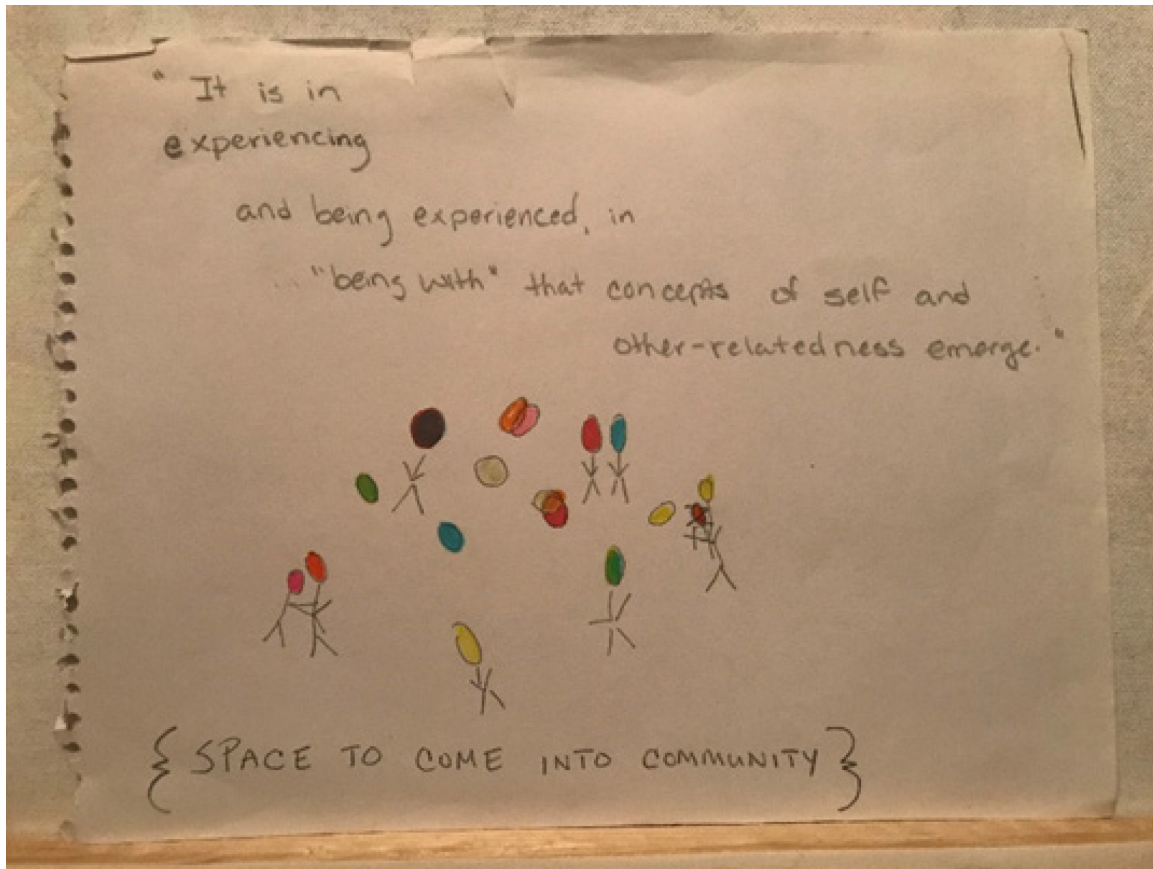 " It is in
experiencing
and being experienced, in
"being with" that concepts of self and
other-relatedness emerge."
{ SPACE TO COME INTO COMMUNITY }